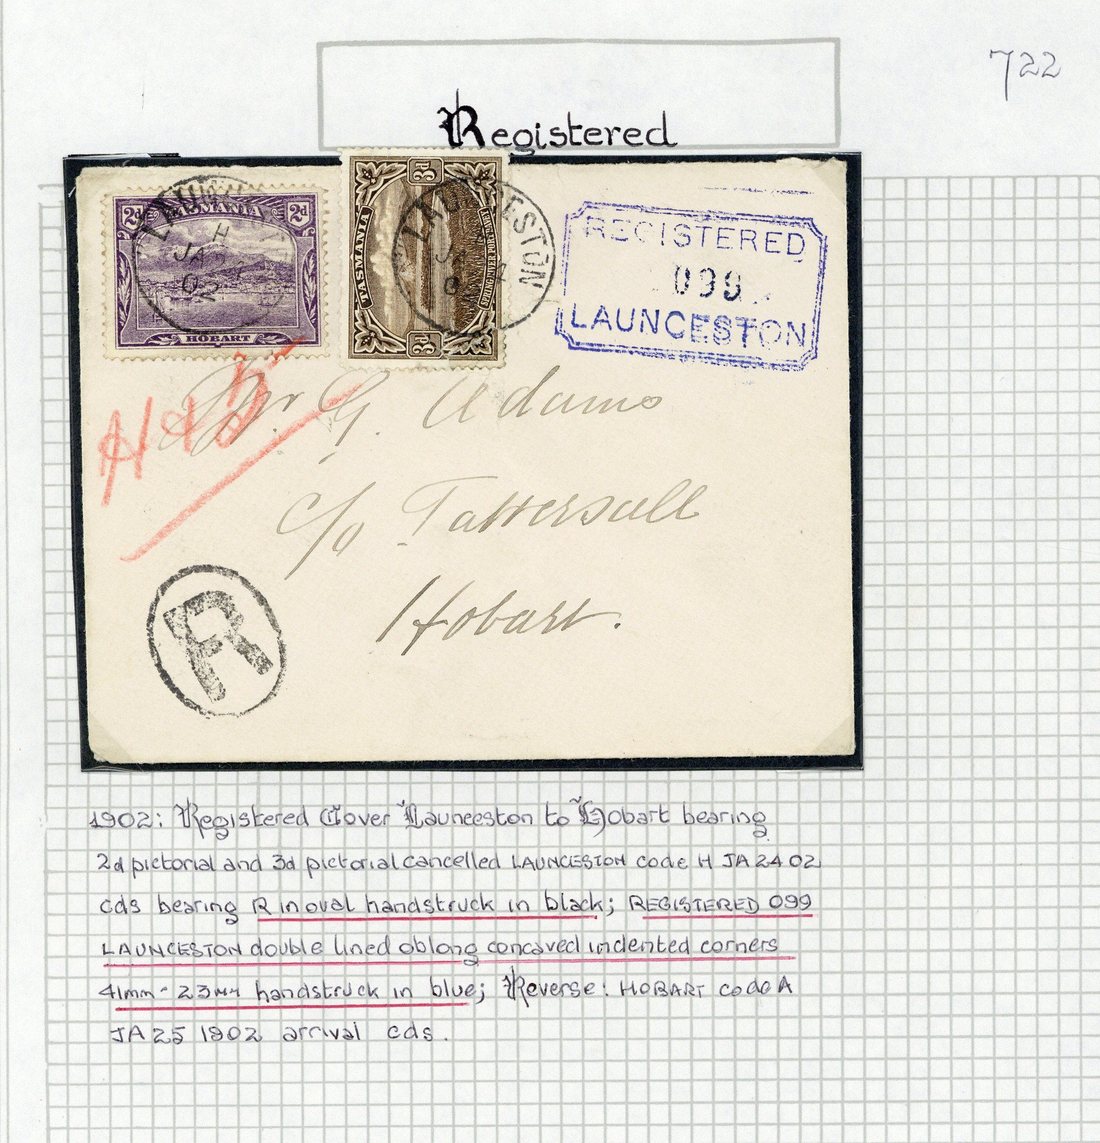 722
Registered
2d TASMANIA 2d
HOBART
LAUN
H
JA
02
3d
TASMANIA
SPRING RIVER PORT DAVEY
3d
LAUNCESTON
JA
REGISTERED
099
LAUNCESTON
Mr G. Adams
c/o Tattersall
Hobart.
R
1902: Registered Cover Launceston to Hobart bearing
2d pictorial and 3d pictorial cancelled LAUNCESTON code H JA 24 02
cds bearing R in oval handstruck in black; REGISTERED 099
LAUNCESTON double lined oblong concaved indented corners
41mm - 23mm handstruck in blue; Reverse: HOBART code A
JA 25 1902 arrival cds.